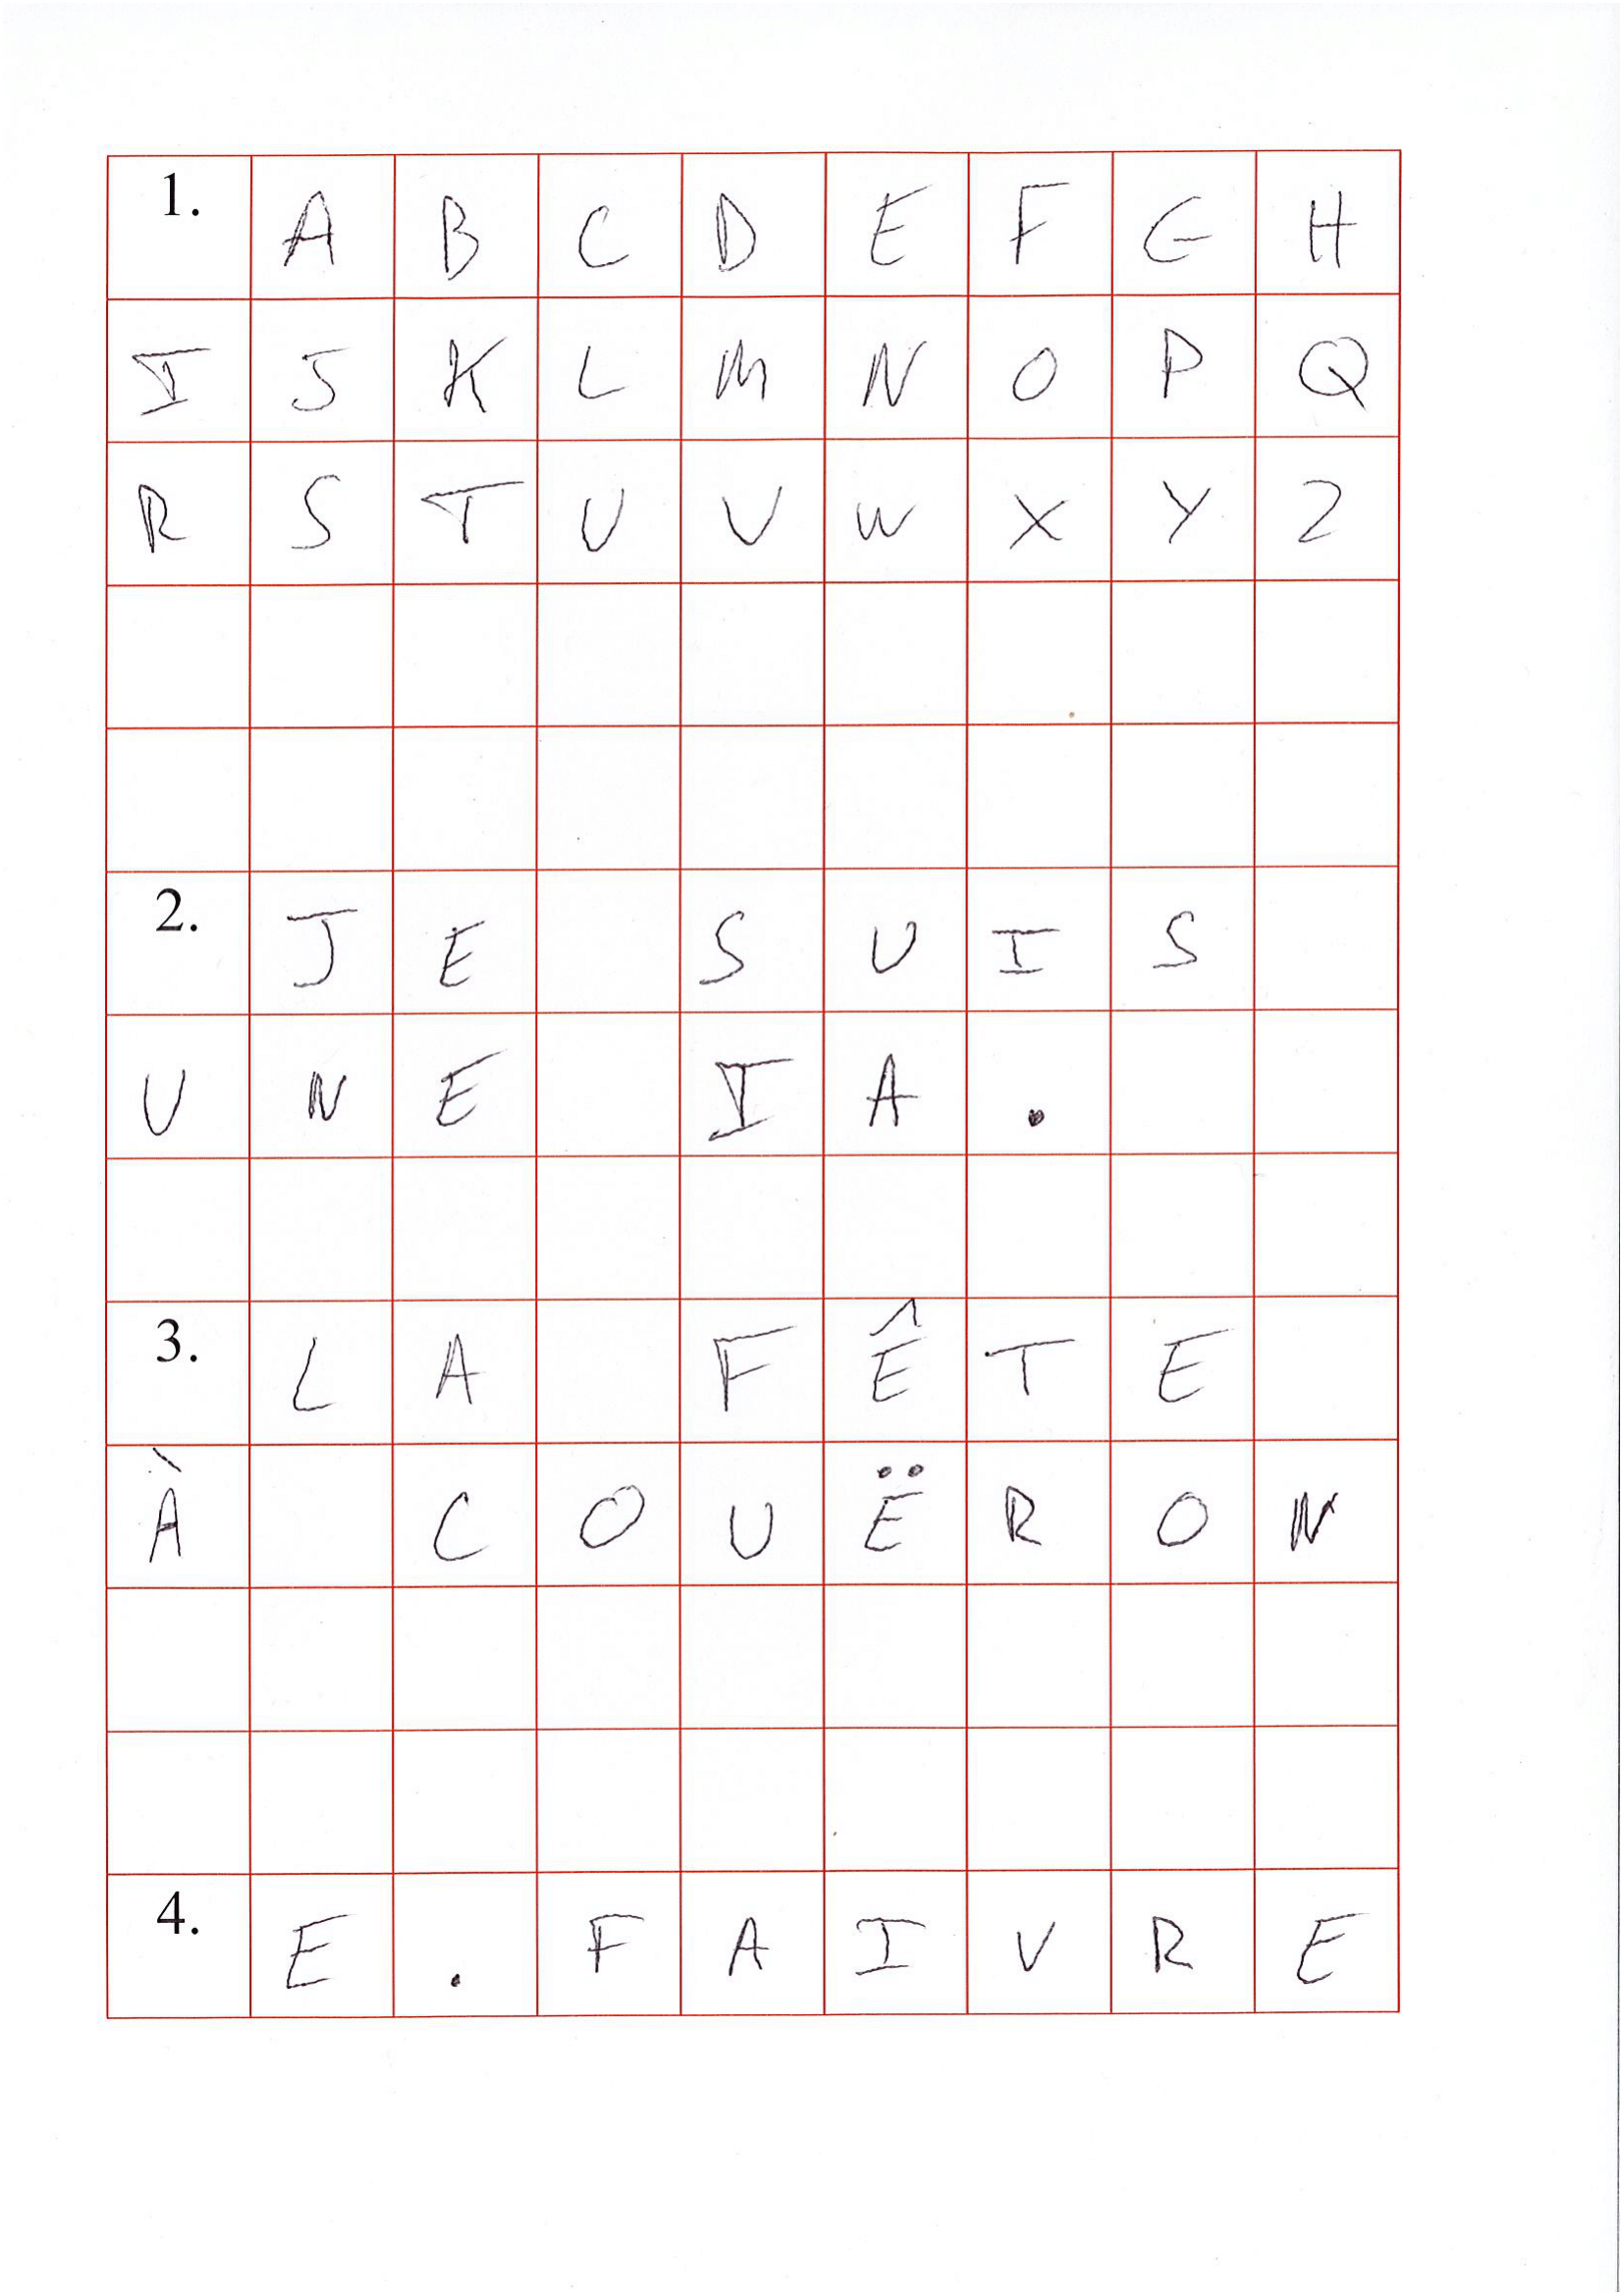 1. A B C D E F G H
I J K L M N O P Q
R S T U V W X Y Z
2. J E S U I S
U N E I A .
3. L A F Ê T E
À C O U Ë R O N
4. E . F A I V R E